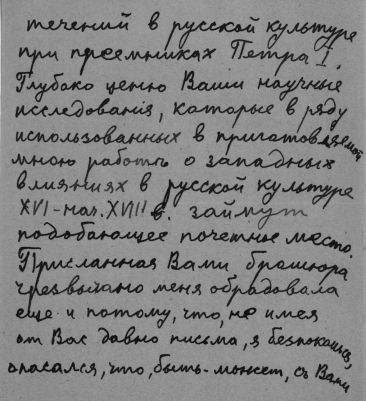 течений в русской культуре
при преемниках Петра I.
Глубоко ценю Ваши научные
исследования, которые в ряду
использованных в приготовляемой
мною работѣ о западных
влияниях в русской культуре
XVI-нач. XVIII в. займут
подобающее почетное место.
Присланная Вами брошюра
чрезвычайно меня обрадовала
еще и потому, что, не имея
от Вас давно письма, я безпокоился,
опасался, что, быть-может, съ Вами